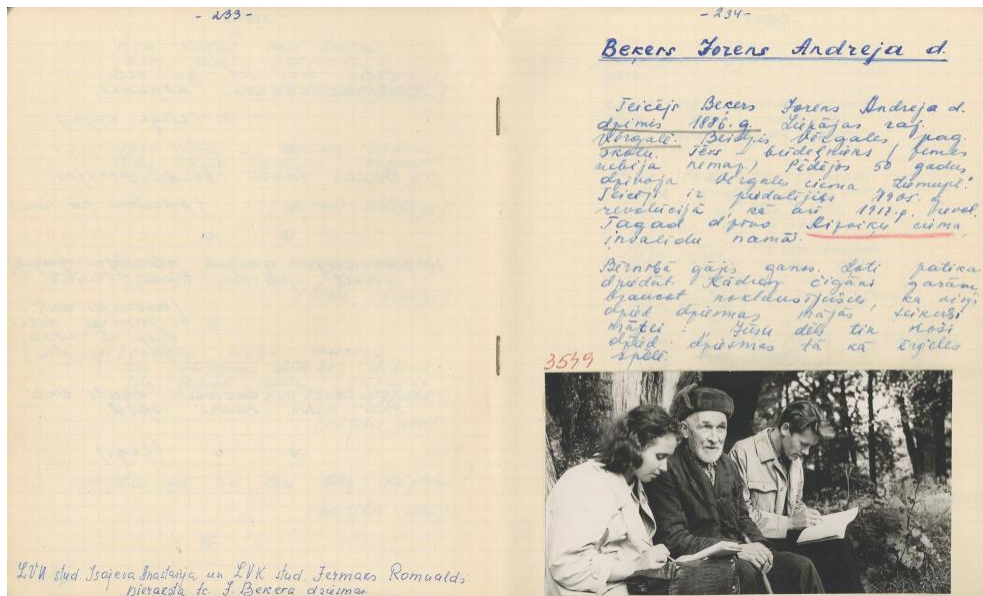 - 233 -
LVU stud. Isajeva Anastasija un LVK stud. Jermaks Romualds
pieraksta tc. J. Beķera dziesmas.
- 234 -
Beķers Jorens Andreja d.
Teicējs Beķers Jorens Andreja d.
dzimis 1886. g. Liepājas raj.
Vērgalē. Beidzis Vērgales pag.
skolu. Tēvs - būdeļnieks (zemes
nebija nemaz.) Pēdējos 50 gadus
dzīvoja Vērgales ciema
Teicējs ir piedalījies 1905. g.
revolūcijā, kā arī 1917. g. revol.
Tagad dzīvo ciema,
invalīdu namā.
Bērnībā gājis ganos. Ļoti patika
dziedāt. Kādreiz čigāni garām
braucot noklausījušies, ka viņš
dzied dziesmas mājās teikuši
mātei: Jūsu dēls tik koši
dzied dziesmas tā kā ērģeles
spēlē.
3549